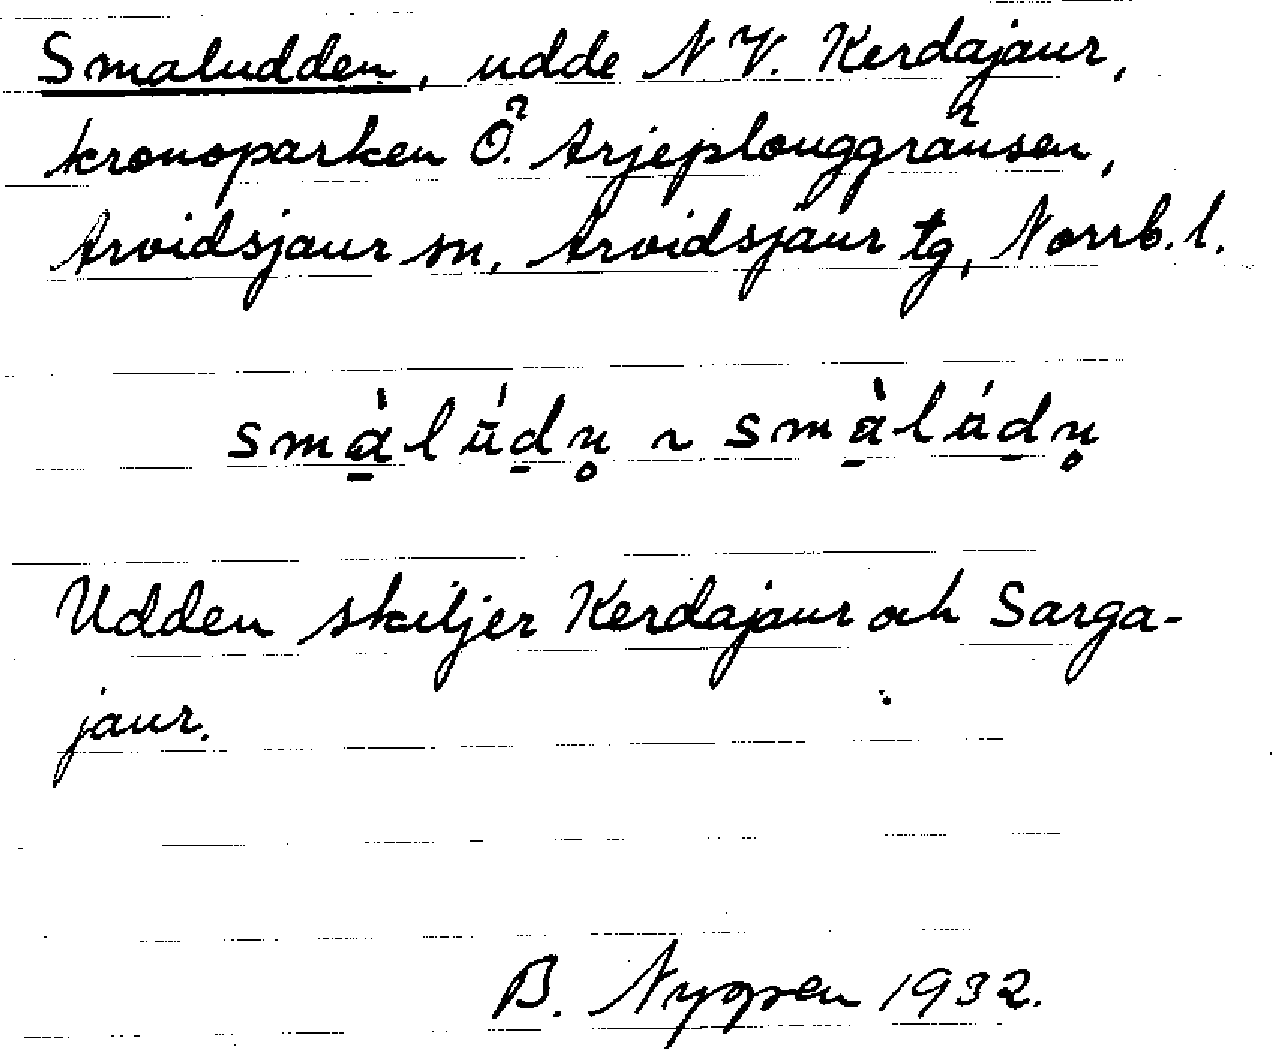 Smaludden, udde N.V. Kerdajaur,
kronoparken Ö. Arjeplouggränsen,
Arvidsjaur sn, Arvidsjaur tg, Norrb. l.
smа̱̀lū́d̲n̥ ~ smа̱̀lúd̲n̥
Udden skiljer Kerdajaur och Sarga-
jaur.
B. Nygren 1932.